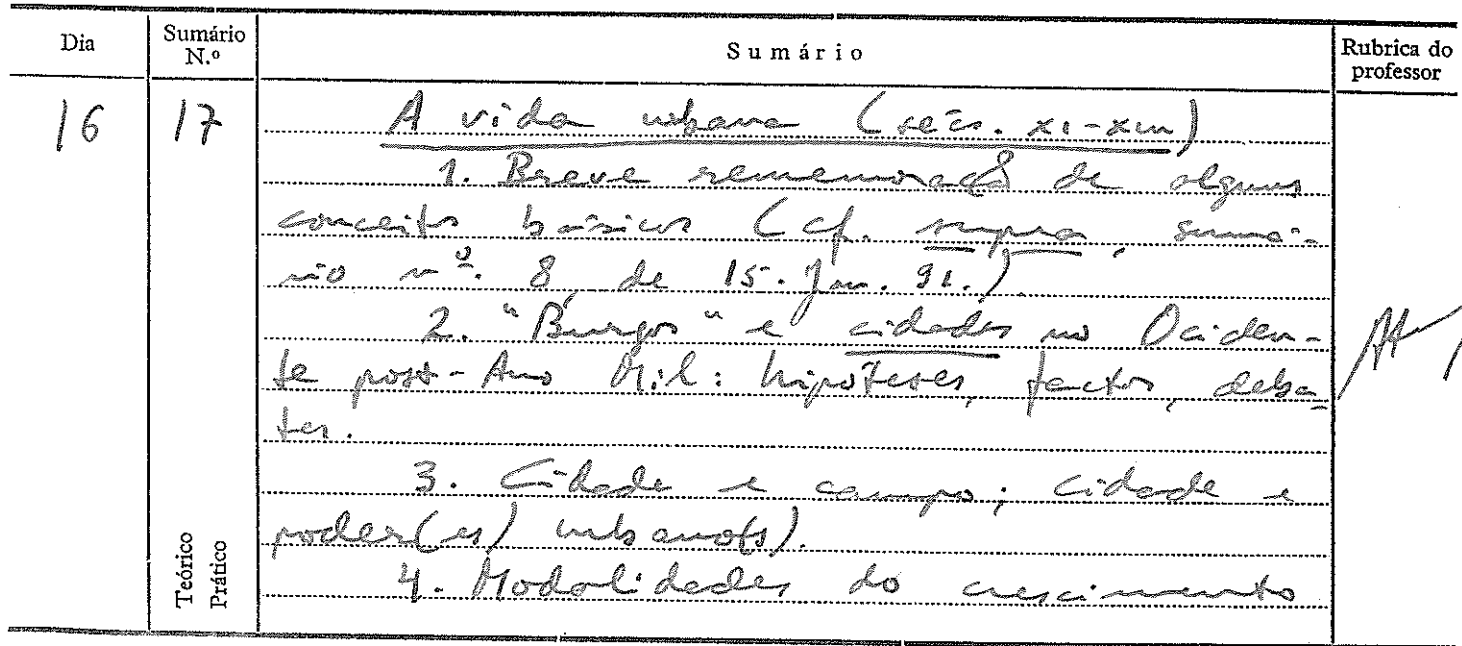 Dia
Sumário
N.º
Sumário
Rubrica do
professor
16
17
A vida urbana (sécs. XI-XIII)
1. Breve rememoração de alguns
conceitos básicos (cf. supra, sumá-
rio nº. 8, de 15. Jan. 91.).
2. "Burgos" e cidades no Ociden-
te post-Ano Mil: hipóteses, factos, deba-
tes.
3. Cidade e campo; cidade e
poder(es) urbano(s).
4. Modalidades do crescimento
Teórico
Prático